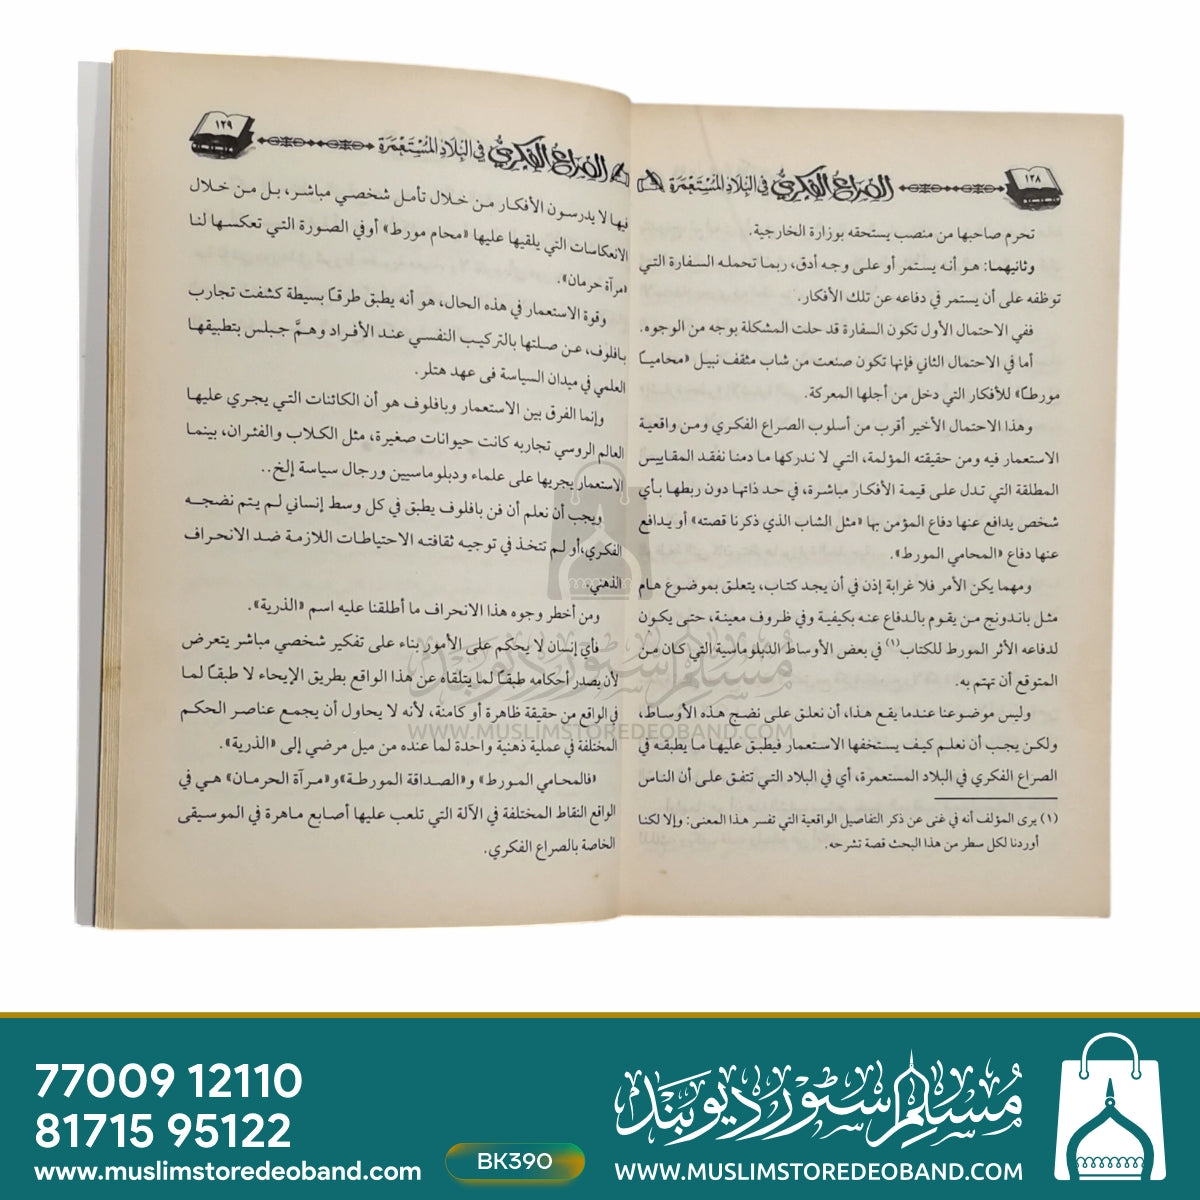 ١٣٨
الصراع الفكري في البلاد المستعمرة
تحرم صاحبها من منصب يستحقه بوزارة الخارجية.
وثانيهما: هو أنه يستمر أو على وجه أدق، ربما تحمله السفارة التي
توظفه على أن يستمر في دفاعه عن تلك الأفكار.
ففي الاحتمال الأول تكون السفارة قد حلت المشكلة بوجه من الوجوه.
أما في الاحتمال الثاني فإنها تكون صنعت من شاب مثقف نبيل «محاميًا
مورطًا» للأفكار التي دخل من أجلها المعركة.
وهذا الاحتمال الأخير أقرب من أسلوب الصراع الفكري ومن واقعية
الاستعمار فيه ومن حقيقته المؤلمة، التي لا ندركها ما دمنا نفقد المقاييس
المطلقة التي تدل على قيمة الأفكار مباشرة، في حد ذاتها دون ربطها بأي
شخص يدافع عنها دفاع المؤمن بها «مثل الشاب الذي ذكرنا قصته» أو يدافع
عنها دفاع «المحامي المورط».
ومهما يكن الأمر فلا غرابة إذن في أن يجد كتاب، يتعلق بموضوع هام
مثل باندونج من يقوم بالدفاع عنه بكيفية وفي ظروف معينة، حتى يكون
لدفاعه الأثر المورط للكتاب(١) في بعض الأوساط الدبلوماسية التي كان من
المتوقع أن تهتم به.
وليس موضوعنا عندما يقع هذا، أن نعلق على نضج هذه الأوساط،
ولكن يجب أن نعلم كيف يستخفها الاستعمار فيطبق عليها ما يطبقه في
الصراع الفكري في البلاد المستعمرة، أي في البلاد التي تتفق على أن الناس
(١) يرى المؤلف أنه في غنى عن ذكر التفاصيل الواقعية التي تفسر هذا المعنى: وإلا لكنا
أوردنا لكل سطر من هذا البحث قصة تشرحه.
١٣٩
الصراع الفكري في البلاد المستعمرة
فيها لا يدرسون الأفكار من خلال تأمل شخصي مباشر، بل من خلال
الانعكاسات التي يلقيها عليها «محام مورط» أو في الصورة التي تعكسها لنا
«مرآة حرمان».
وقوة الاستعمار في هذه الحال، هو أنه يطبق طرقًا بسيطة كشفت تجارب
بافلوف، عن صلتها بالتركيب النفسي عند الأفراد وهمَّ جبلس بتطبيقها
العلمي في ميدان السياسة فى عهد هتلر.
وإنما الفرق بين الاستعمار وبافلوف هو أن الكائنات التي يجري عليها
العالم الروسي تجاربه كانت حيوانات صغيرة، مثل الكلاب والفئران، بينما
الاستعمار يجريها على علماء ودبلوماسيين ورجال سياسة إلخ..
ويجب أن نعلم أن فن بافلوف يطبق في كل وسط إنساني لم يتم نضجه
الفكري،أو لم نتخذ في توجيه ثقافته الاحتياطات اللازمة ضد الانحراف
الذهني.
ومن أخطر وجوه هذا الانحراف ما أطلقنا عليه اسم «الذرية».
فأي إنسان لا يحكم على الأمور بناء على تفكير شخصي مباشر يتعرض
لأن يصدر أحكامه طبقًا لما يتلقاه عن هذا الواقع بطريق الإيحاء لا طبقًا لما
في الواقع من حقيقة ظاهرة أو كامنة، لأنه لا يحاول أن يجمع عناصر الحكم
المختلفة في عملية ذهنية واحدة لما عنده من ميل مرضي إلى «الذرية».
«فالمحامي المورط» و«الصداقة المورطة»و«مرآة الحرمان» هي في
الواقع النقاط المختلفة في الآلة التي تلعب عليها أصابع ماهرة في الموسيقى
الخاصة بالصراع الفكري.
مسلم سٹور دیوبند
WWW.MUSLIMSTOREDEOBAND.COM
77009 12110
81715 95122
www.muslimstoredeoband.com
BK390
مسلم سٹور دیوبند
WWW.MUSLIMSTOREDEOBAND.COM